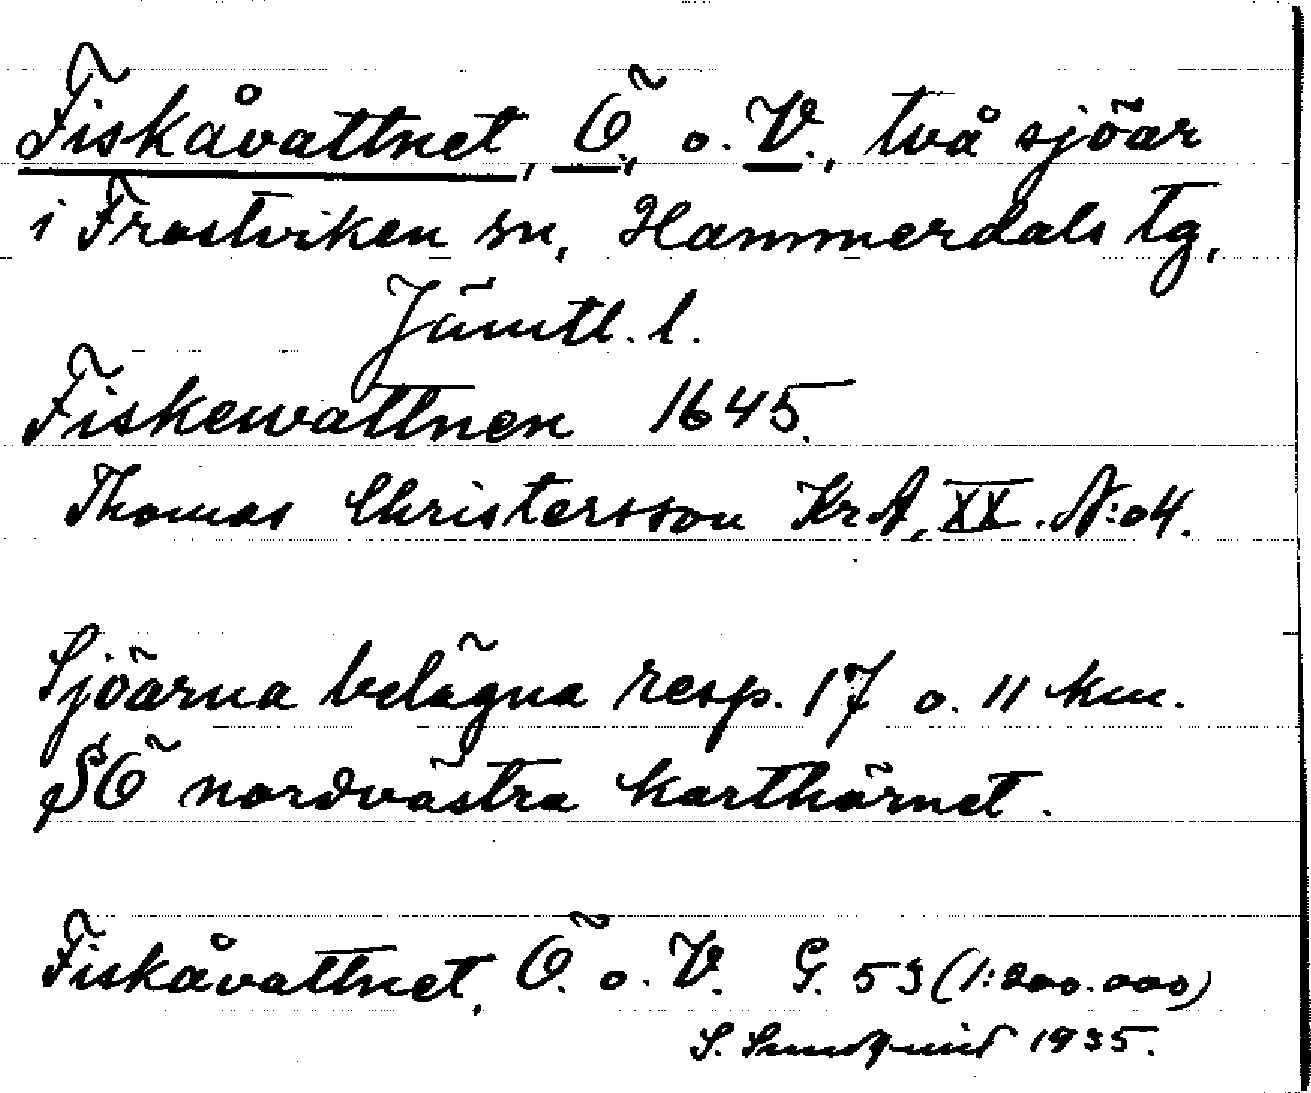 Fiskåvattnet, Ö., o. V., två sjöar
i Frostviken sn, Hammerdals tg,
Jämtl. l.
Fiskewattnen 1645.
Thomas Christersson KrA, XX. N:o 4.
Sjöarna belägna resp. 17 o. 11 km.
SÖ nordvästra karthörnet.
Fiskåvattnet, Ö. o. V. G. 53 (1:200.000)
S. Sundquist 1935.